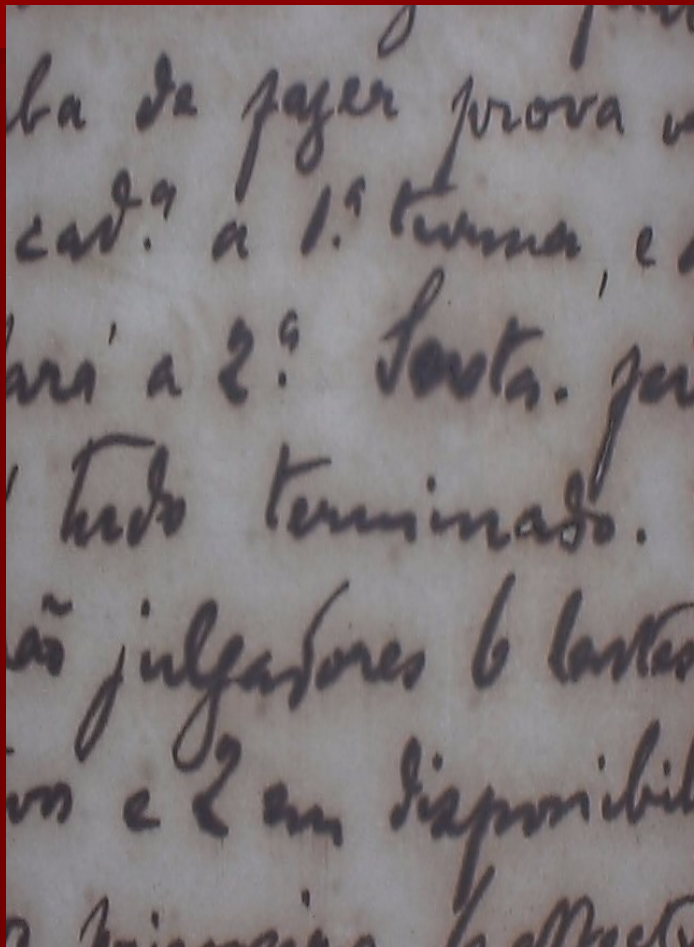 ba de fazer prova
cad.ª a 1.ª turma, e
ará a 2.ª Sexta.
tudo terminado.
ão julgadores 6 lentes
vos e 2 em disponibil
primeiro